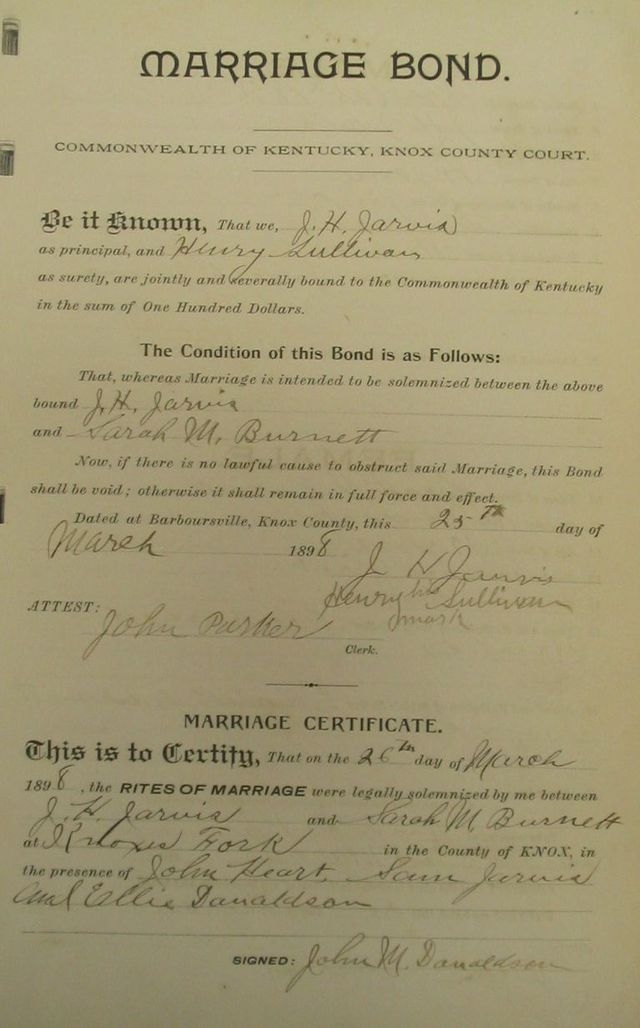 MARRIAGE BOND.
COMMONWEALTH OF KENTUCKY, KNOX COUNTY COURT.
Be it Known, That we, J. H. Jarvis
as principal, and Henry Sullivan
as surety, are jointly and severally bound to the Commonwealth of Kentucky
in the sum of One Hundred Dollars.
The Condition of this Bond is as Follows:
That, whereas Marriage is intended to be solemnized between the above
bound J. H. Jarvis
and Sarah M. Burnett
Now, if there is no lawful cause to obstruct said Marriage, this Bond
shall be void; otherwise it shall remain in full force and effect.
Dated at Barboursville, Knox County, this 25th day of
March 1898
J H Jarvis
Henry his Sullivan
mark
ATTEST:
John Parker
Clerk.
MARRIAGE CERTIFICATE.
This is to Certify, That on the 26th day of March
1898, the RITES OF MARRIAGE were legally solemnized by me between
J. H. Jarvis and Sarah M Burnett
at Knoxes Fork in the County of KNOX, in
the presence of John Heart, Sam Jarvis
and Ellis Danaldson
SIGNED: John M. Donaldson